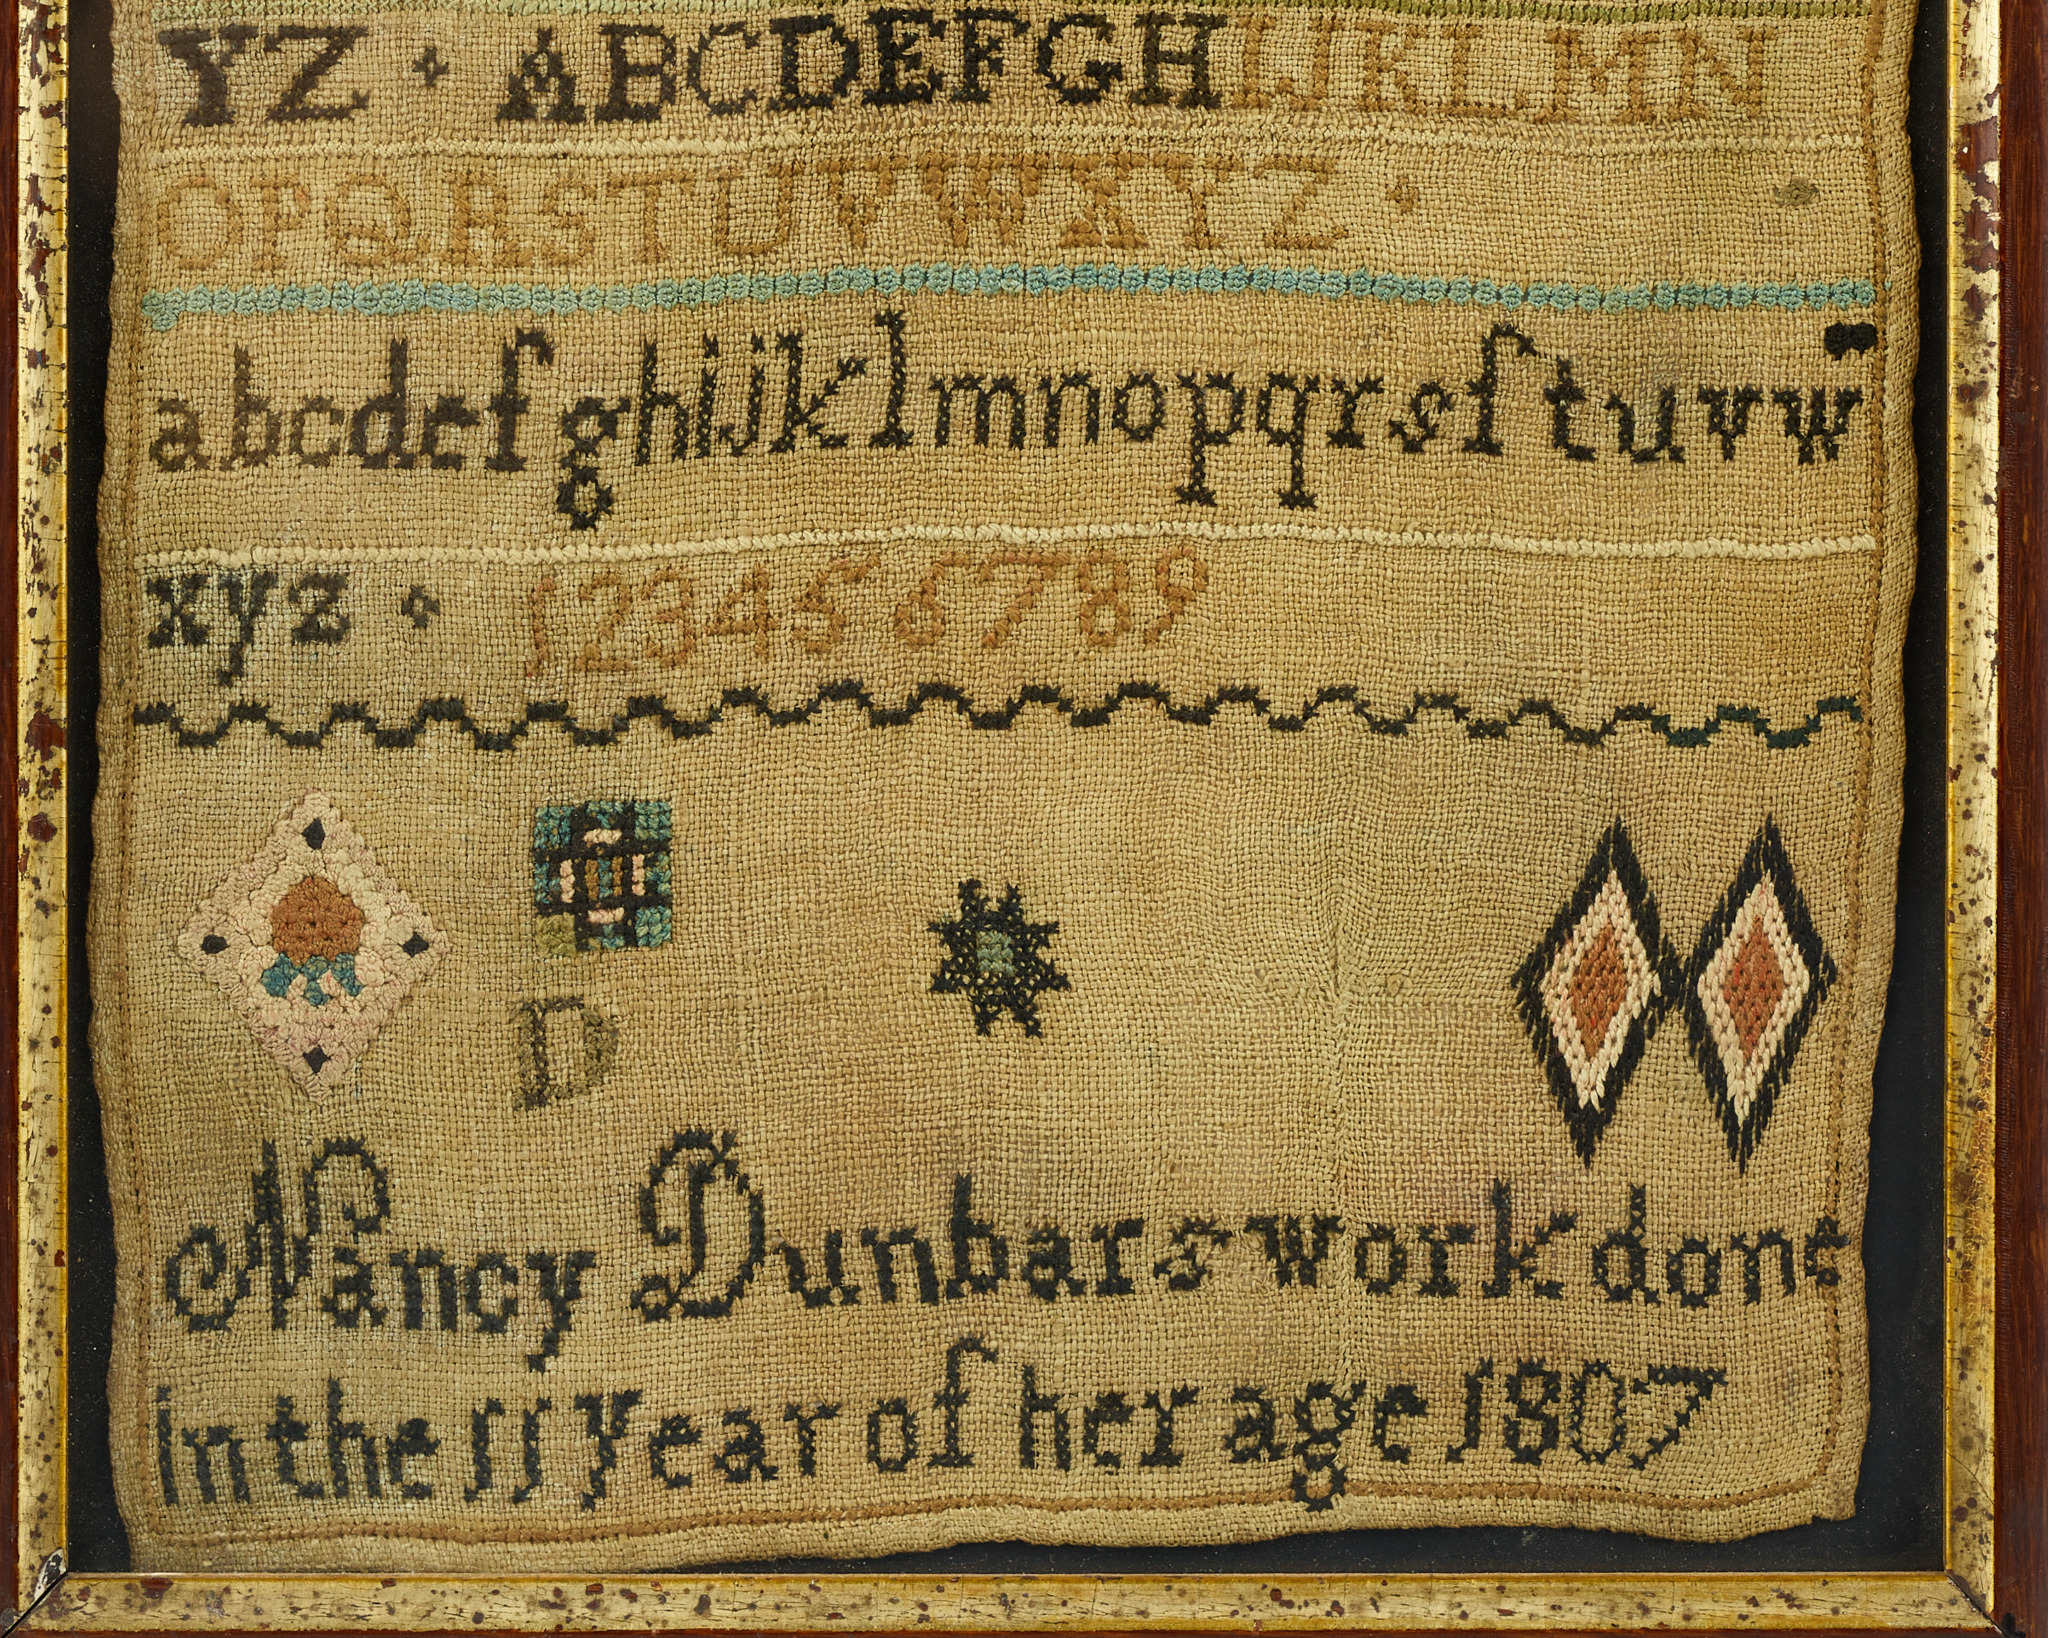 YZ · ABCDEFGHIJKLMN
OPQRSTUVWXYZ ·
abcdefghijklmnopqrsſtuvw
xyz · 123456789
D
Nancy Dunbars work done
in the 11 year of her age 1807